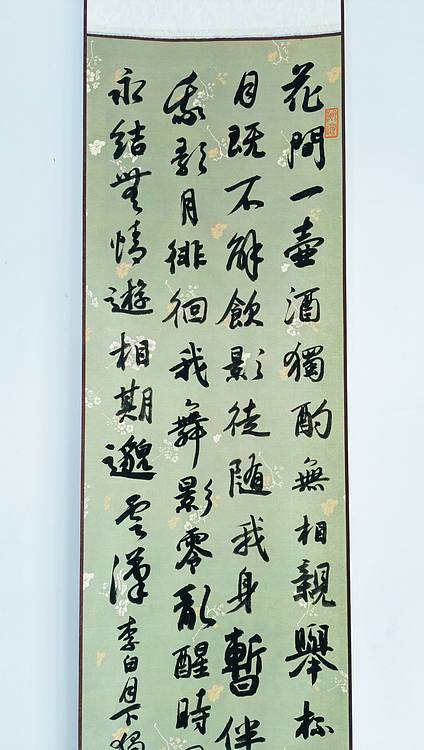 花間一壺酒獨酌無相親舉杯
月既不解飲影徒隨我身暫伴
我歌月徘徊我舞影零亂醒時
永結無情遊相期邈雲漢 李白月下獨